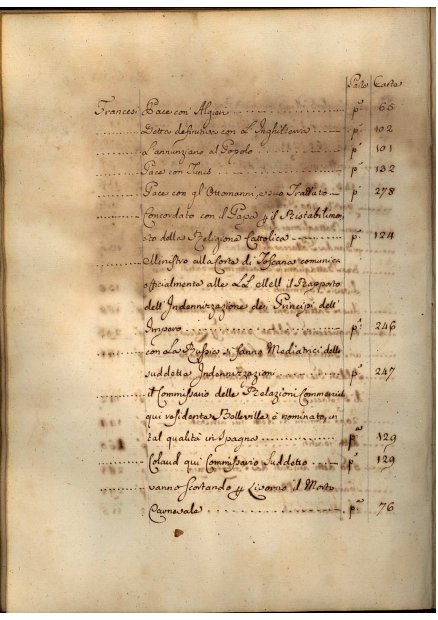 Parte Carta
Francesi Pace con' Algieri p.ª 65
Detta definitiva con L'Inghilterra p.ª 102
L'annunziano al Popolo p.ª 101
Pace con Tunis p.ª 132
Pace con gl'Ottomanni, e suo Trattato p.ª 278
Concordato con il Papa il Ristabilimen
to della Religione Cattolica p.ª 124
Ministro alla Corte di Toscana comunica
offcialmente alle LL. MM. il Rapporto
dell'Indennizzazione de Principi dell'
Impero p.ª 246
con La Russia si fanno Mediatrici della
suddetta Indennizzazione p.ª 247
il Commissario delle Relazioni Commerciali
qui residente Belleville è nominato, in
tal qualità in Spagna p.ª 129
Colaud qui Commissario Suddetto p.ª 129
vanno scortando Livorno il Morto
Carnevale p.ª 76